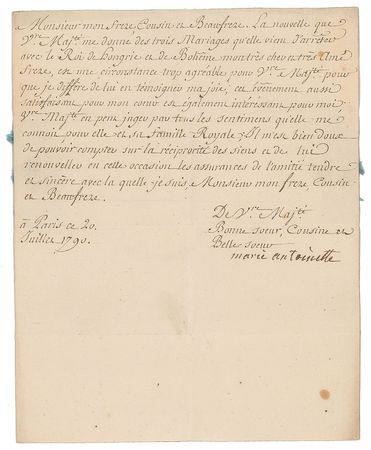 Monsieur mon frere Cousin et Beaufrere. La nouvelle que
V.re Maj.té me donne des trois Mariages qu'elle vient d'arrêter
avec le Roi de Hongrie et de Boheme mon très cher et très Amé
frere, est une circonstance trop agréable pour V.re Maj.té pour
que je differe de lui en témoigner ma joie; cet evénement aussi
satisfaisant pour mon coeur est également interessant pour moi.
V.re Maj.té en peut juger par tous les sentimens qu'elle me
connoit pour elle et sa famille Royale; Il m'est bien doux
de pouvoir compter sur la réciprocité des siens et de lui
renouveller en cette occasion les assurances de l'amitié tendre
et sincère avec la quelle je suis, Monsieur mon frere, Cousin
et Beaufrere.
De V.re Maj.té
à Paris ce 20.
Juillet 1790.
Bonne soeur, Cousine et
Belle soeur
marie antoinette